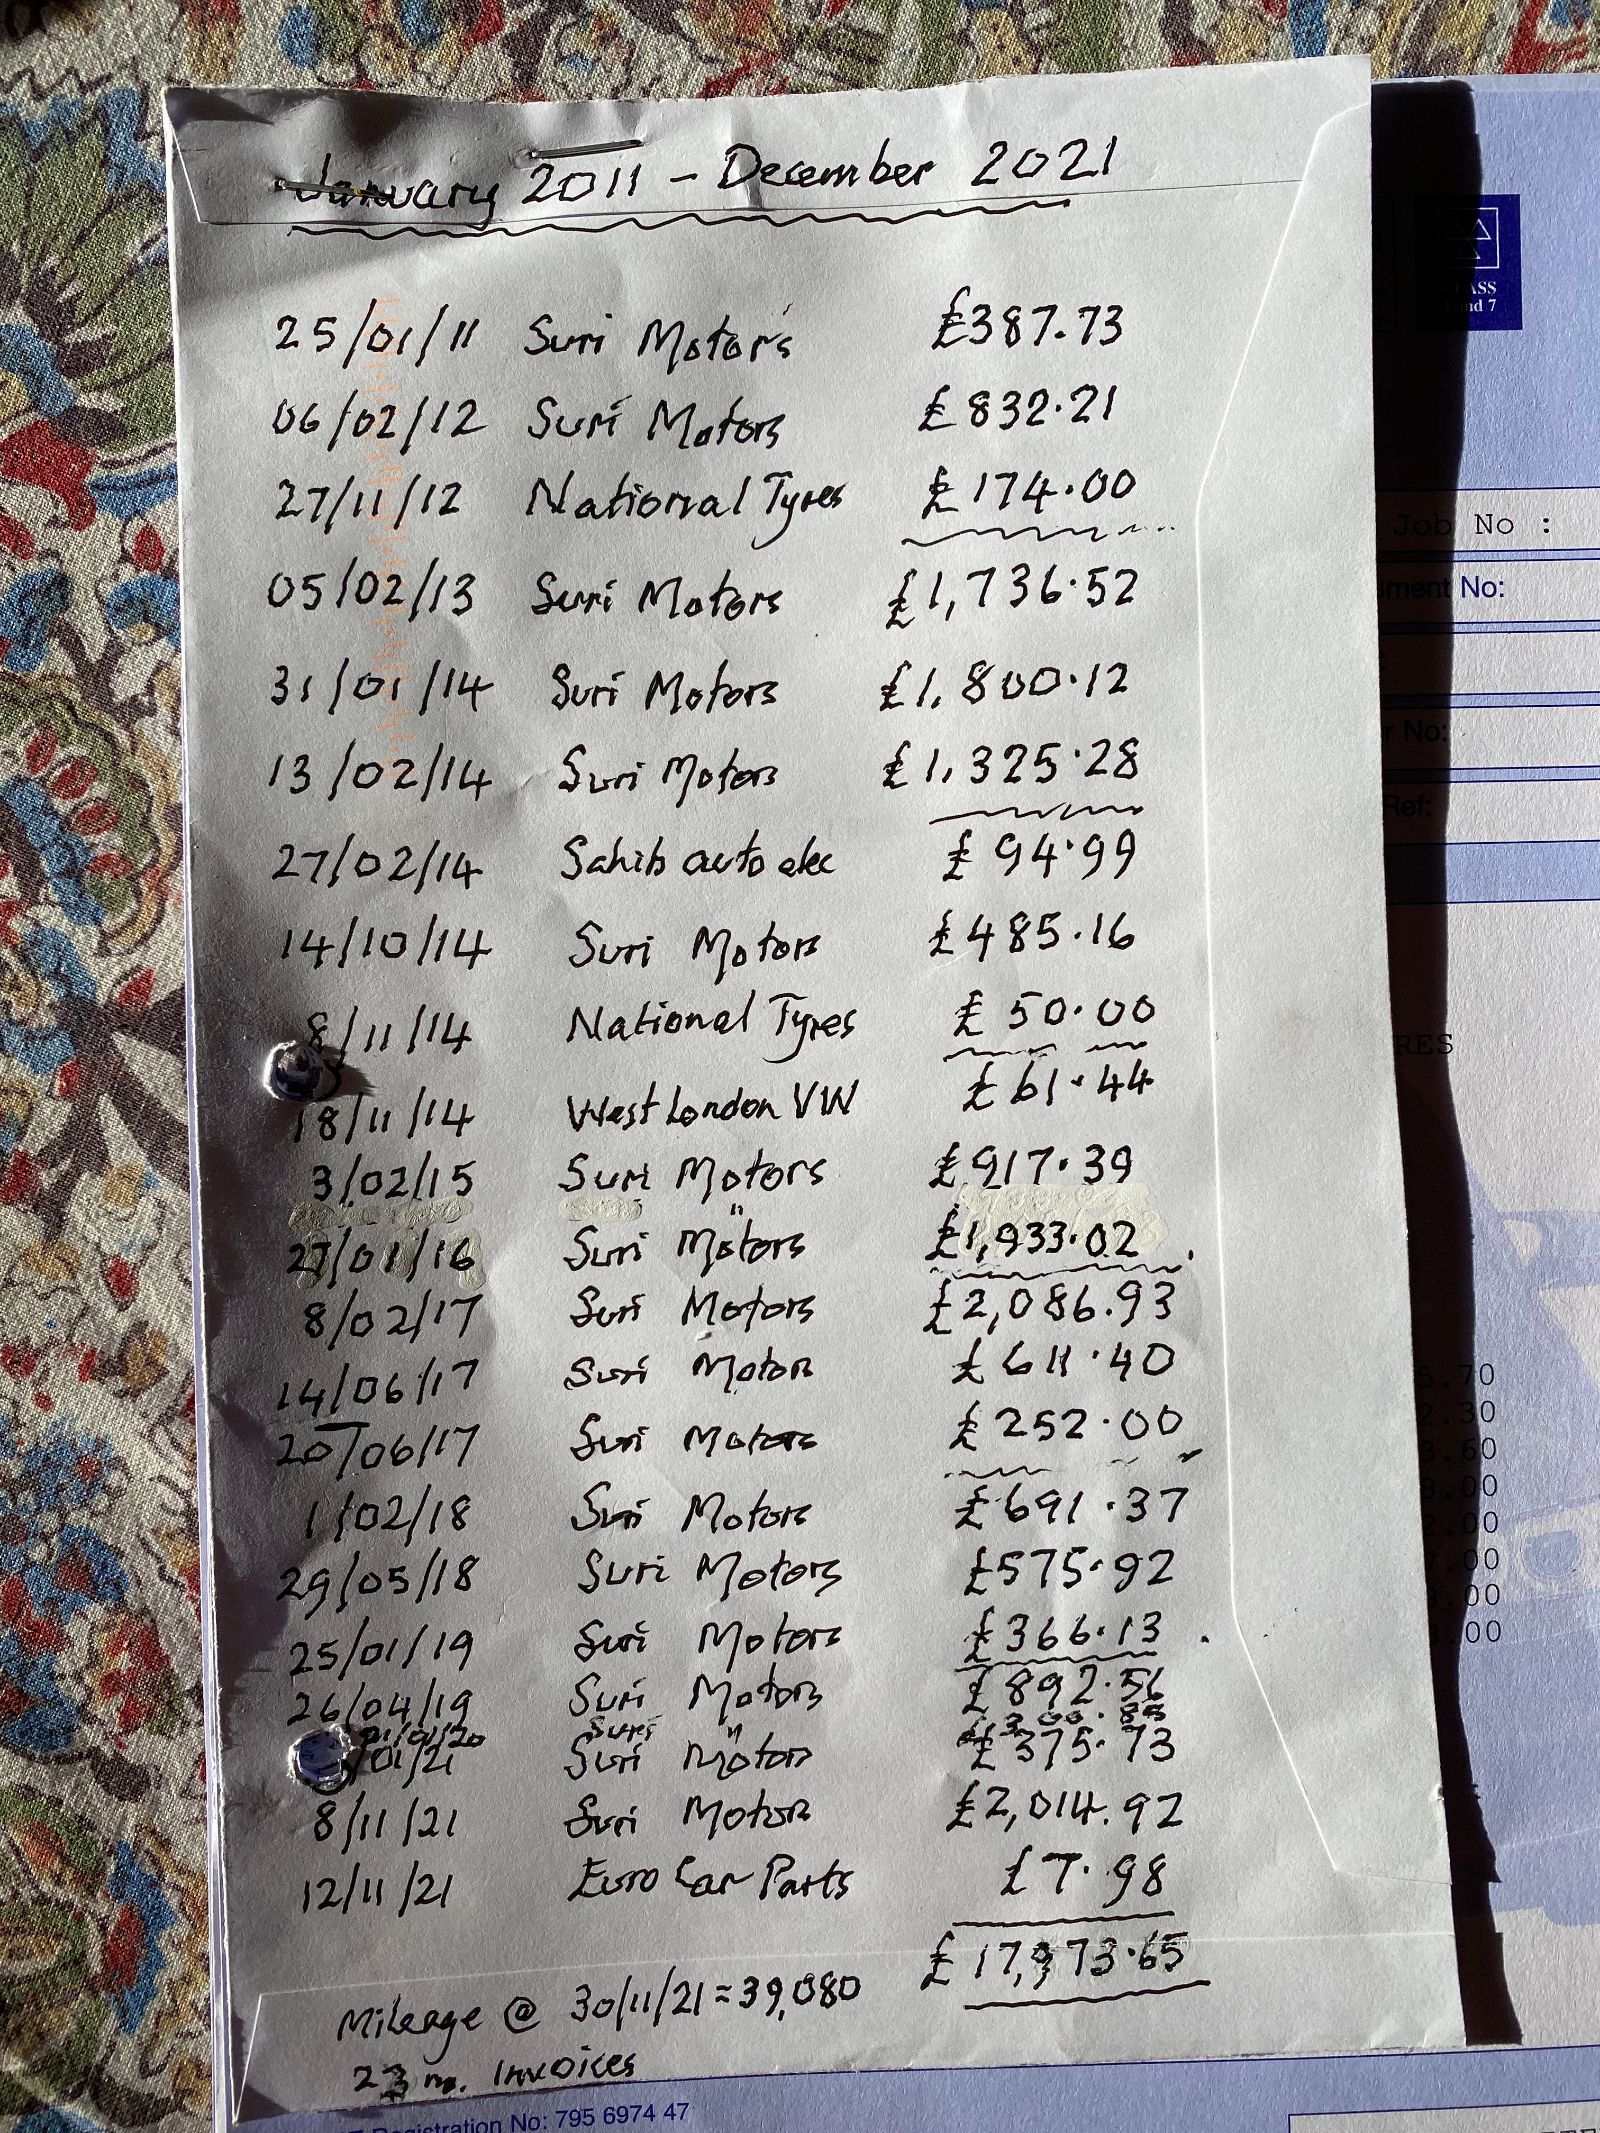 January 2011 - December 2021
25/01/11 Suri Motors £387.73
06/02/12 Suri Motors £832.21
27/11/12 National Tyres £174.00
05/02/13 Suri Motors £1,736.52
31/01/14 Suri Motors £1,800.12
13/02/14 Suri Motors £1,325.28
27/02/14 Sahib auto elec £94.99
14/10/14 Suri Motors £485.16
8/11/14 National Tyres £50.00
18/11/14 West London VW £61.44
3/02/15 Suri Motors £917.39
27/01/16 Suri Motors £1,933.02
8/02/17 Suri Motors £2,086.93
14/06/17 Suri Motors £611.40
20/06/17 Suri Motors £252.00
1/02/18 Suri Motors £691.37
29/05/18 Suri Motors £575.92
25/01/19 Suri Motors £366.13
26/04/19 Suri Motors £892.56
/01/20 Suri "
01/21 Suri Motors £375.73
8/11/21 Suri Motors £2,014.92
12/11/21 Euro Car Parts £7.98
£17,973.65
Mileage @ 30/11/21 = 39,080
23 Invoices
ASS
nd 7
Job No :
ment No:
No:
Ref:
RES
5.70
.30
.60
.00
.00
.00
.00
.00
Registration No: 795 6974 47